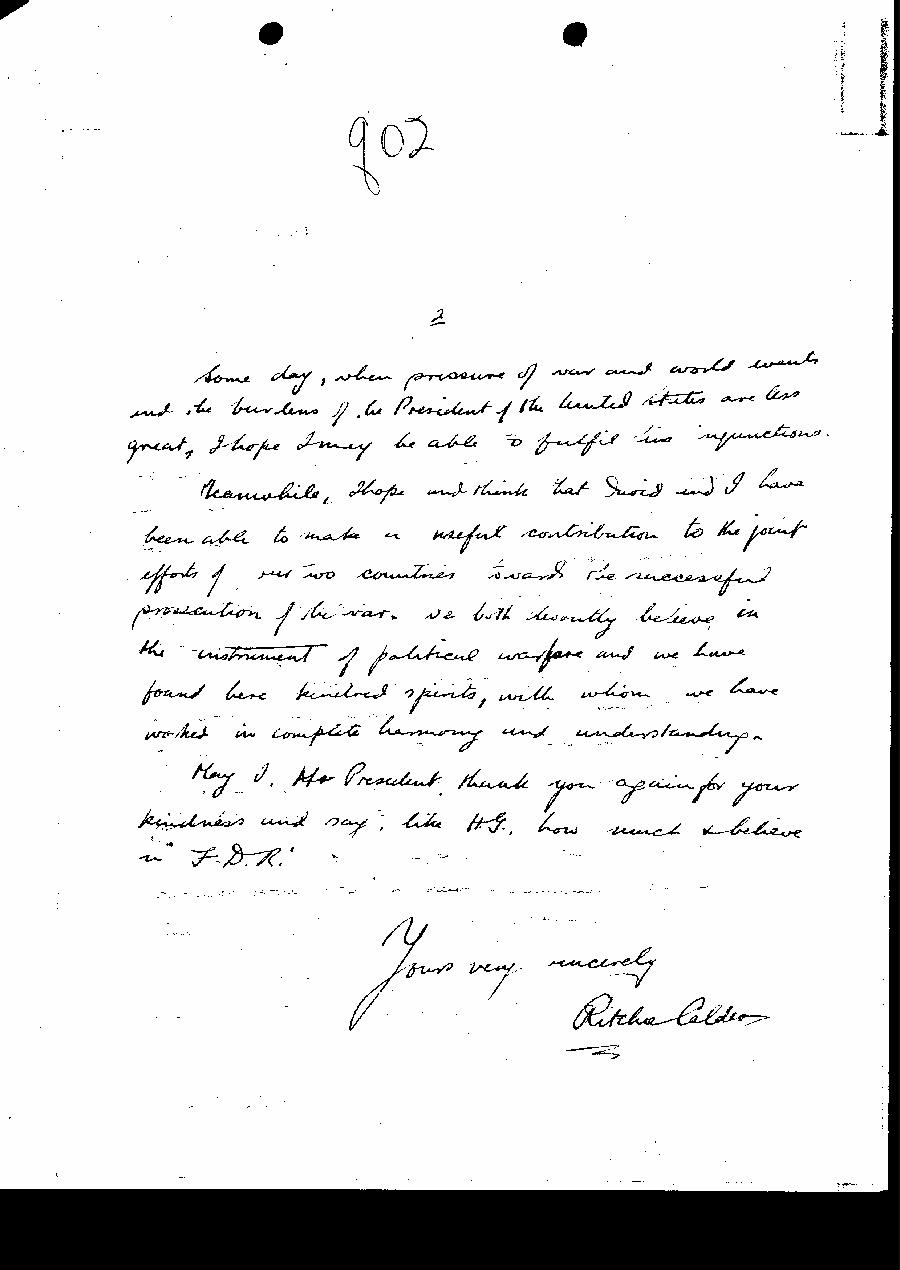 902
2
Some day, when pressure of war and world events
and the burdens of the President of the United States are less
great, I hope I may be able to fulfil his injunctions.
Meanwhile, I hope and think that David and I have
been able to make a useful contribution to the joint
efforts of our two countries towards the successful
prosecution of the war. We both devoutly believe in
the instrument of political warfare and we have
found here kindred spirits, with whom we have
worked in complete harmony and understanding.
May I, Mr President, thank you again for your
kindness and say, like H.G., how much I believe
in "F.D.R."
Yours very sincerely
Ritchie Calder